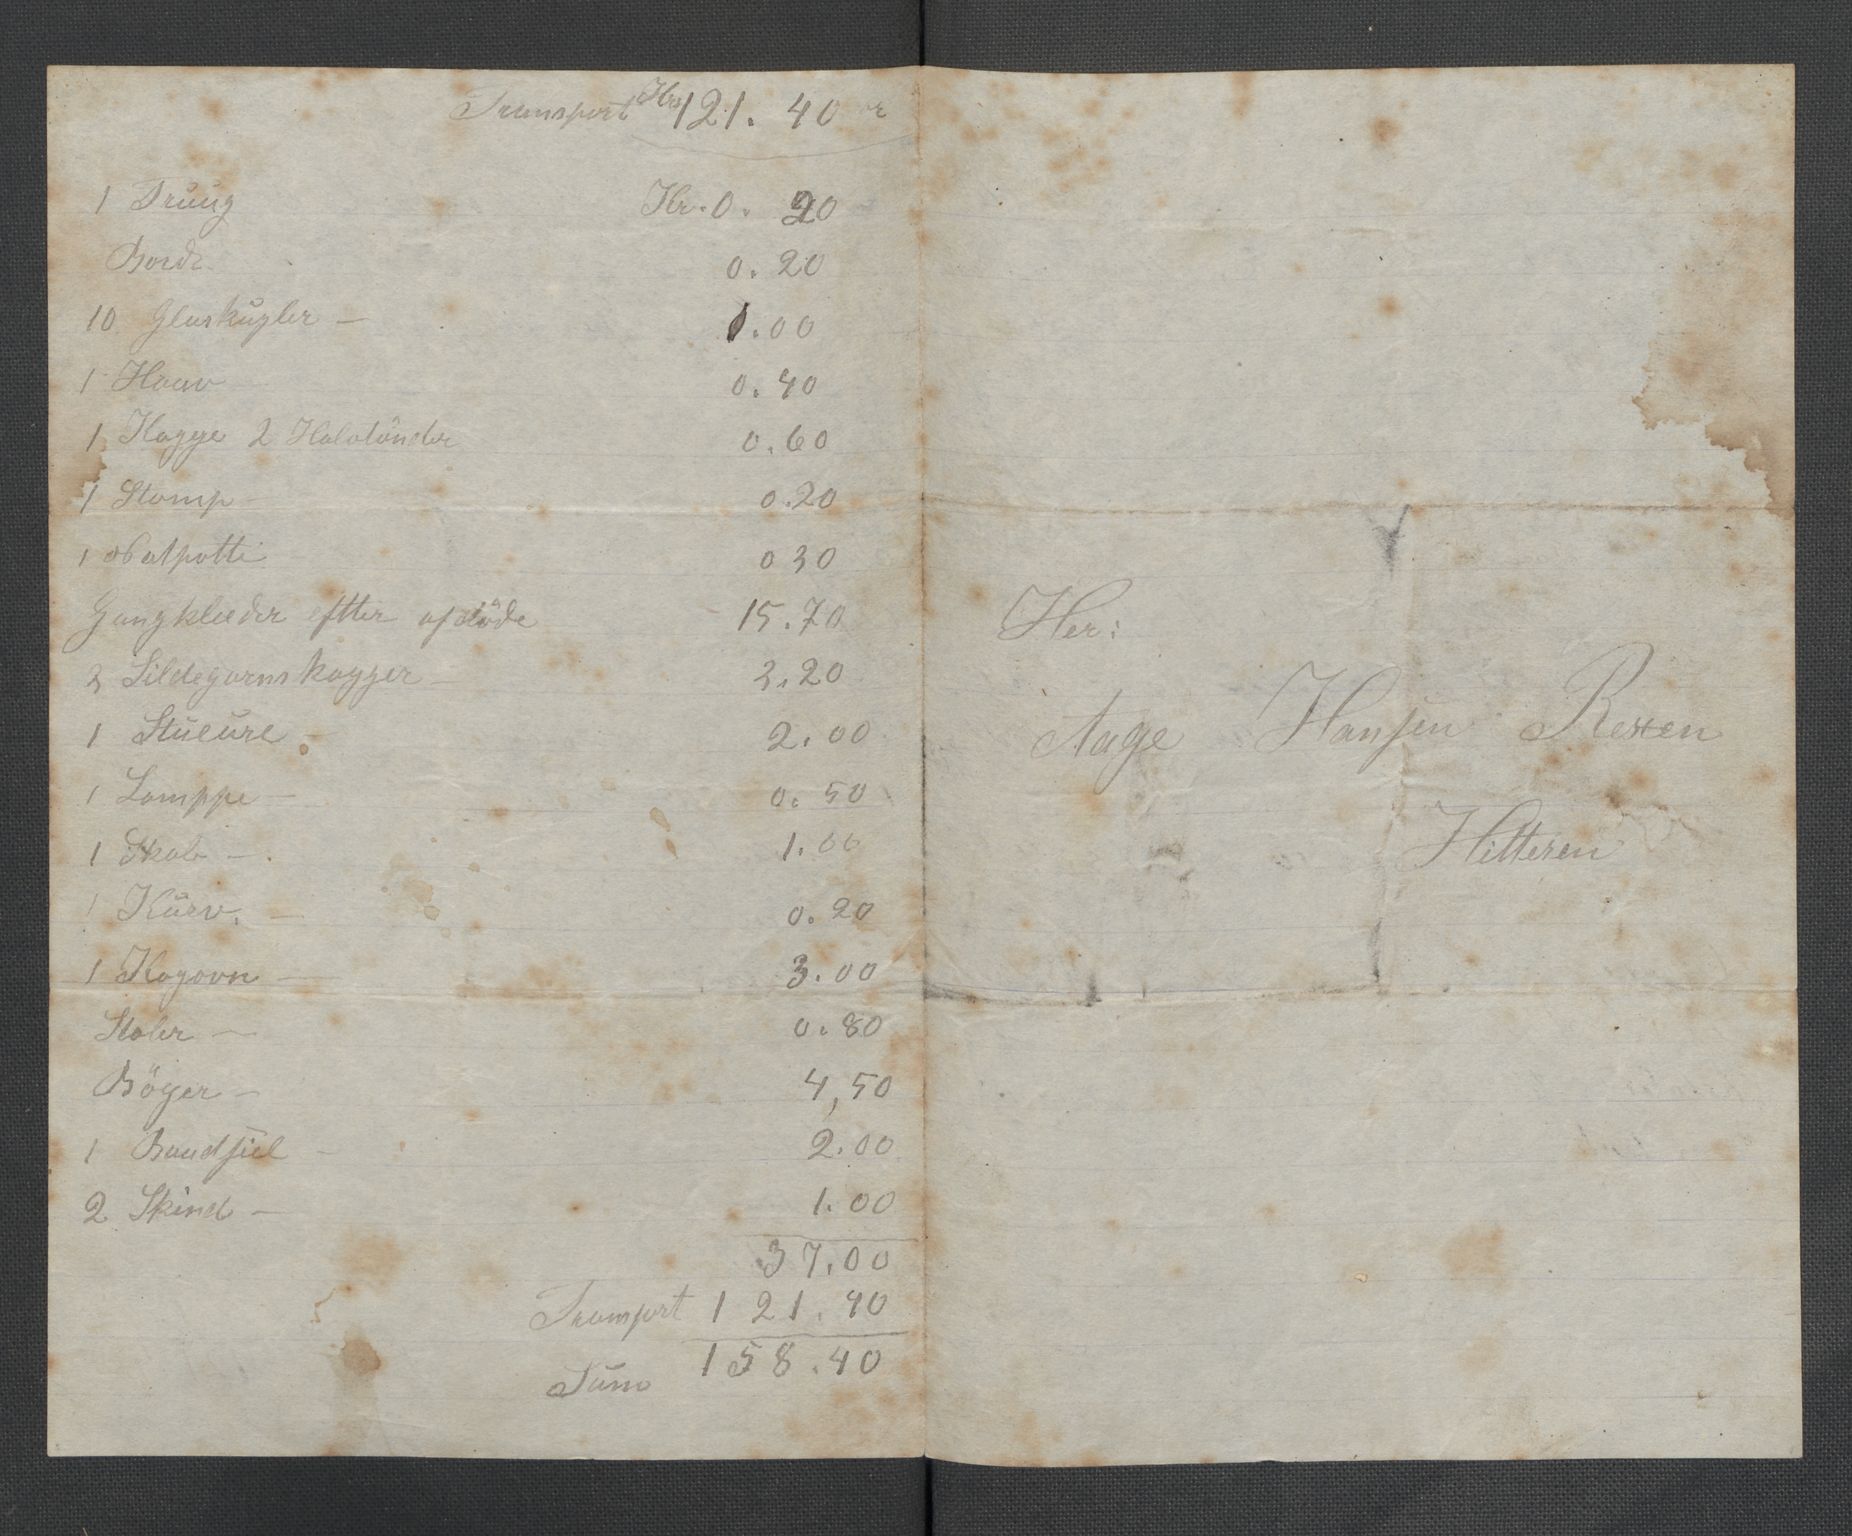 Transport Kr 121. 40 ør
1 Truug Kr. 0. 20
Bord 0. 20
10 Glaskugler — 1.00
1 Haav 0. 40
1 Kagge 2 Halvtönder 0. 60
1 Stamp — 0.20
1 potte 0 30
Gangklæder eftter afdöde 15.70
3 Sildegarnskagger — 3.20
1 Stueure 2.00
1 Lamppe — 0. 50
1 Skab — 1.00
1 Kurv. — 0. 20
1 Kogovn — 3.00
Stoler — 0. 80
Böger — 4,50
1 — 2.00
2 Skind — 1.00
37.00
Transport 121.40
Sum 158.40
Her:
Aage Hansen Rexen
Hitteren